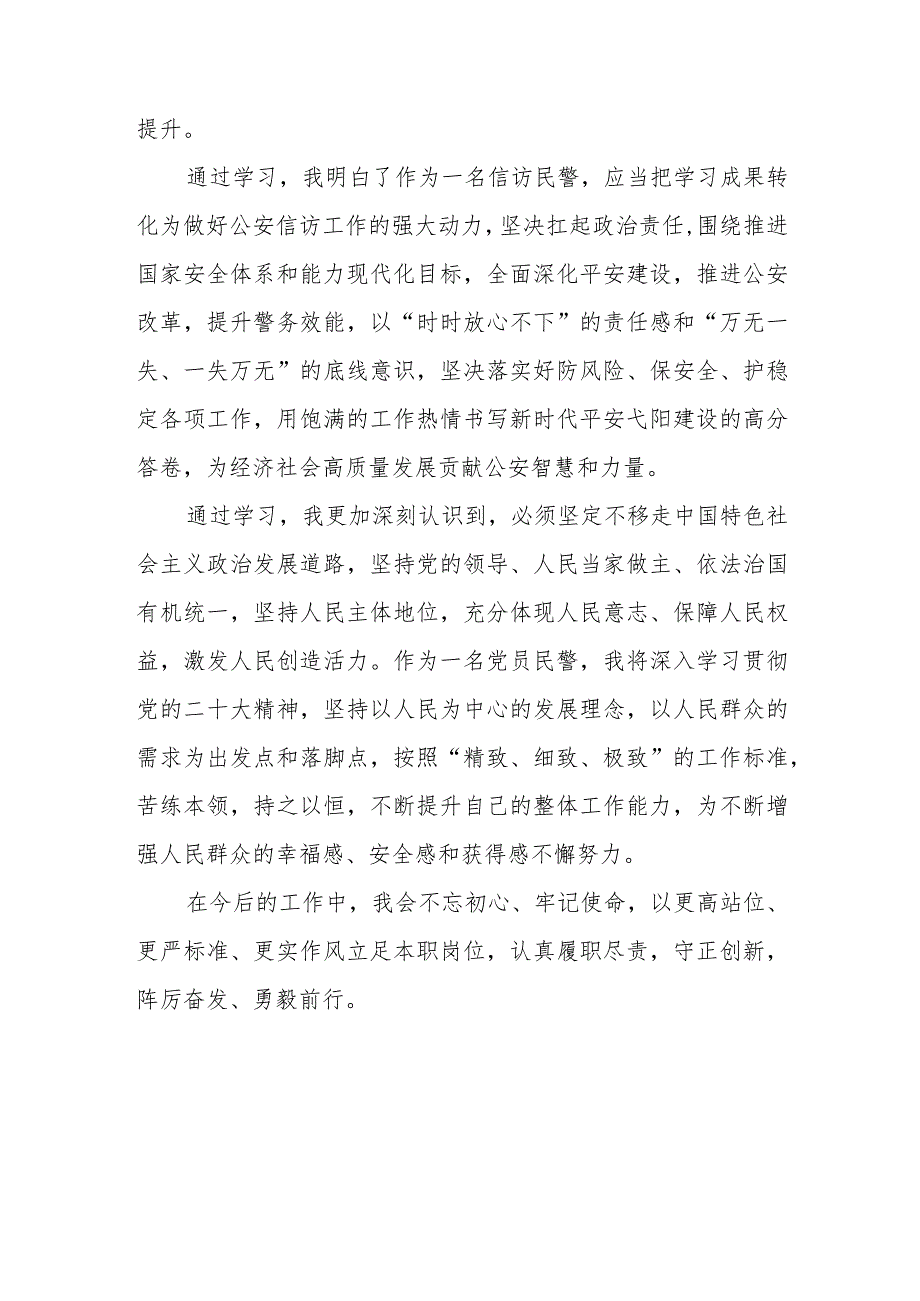 提升。
通过学习，我明白了作为一名信访民警，应当把学习成果转
化为做好公安信访工作的强大动力,坚决扛起政治责任,围绕推进
国家安全体系和能力现代化目标，全面深化平安建设，推进公安
改革，提升警务效能，以“时时放心不下”的责任感和“万无一
失、一失万无”的底线意识，坚决落实好防风险、保安全、护稳
定各项工作，用饱满的工作热情书写新时代平安弋阳建设的高分
答卷，为经济社会高质量发展贡献公安智慧和力量。
通过学习，我更加深刻认识到，必须坚定不移走中国特色社
会主义政治发展道路，坚持党的领导、人民当家做主、依法治国
有机统一，坚持人民主体地位，充分体现人民意志、保障人民权
益，激发人民创造活力。作为一名党员民警，我将深入学习贯彻
党的二十大精神，坚持以人民为中心的发展理念，以人民群众的
需求为出发点和落脚点，按照“精致、细致、极致”的工作标准，
苦练本领，持之以恒，不断提升自己的整体工作能力，为不断增
强人民群众的幸福感、安全感和获得感不懈努力。
在今后的工作中，我会不忘初心、牢记使命，以更高站位、
更严标准、更实作风立足本职岗位，认真履职尽责，守正创新，
阵厉奋发、勇毅前行。